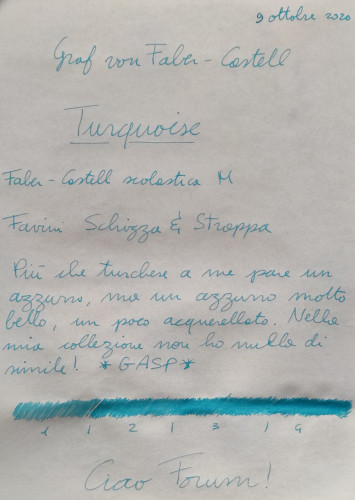 9 ottobre 2020
Graf von Faber-Castell
Turquoise
Faber-Castell scolastica M
Favini Schizza & Strappa
Più che turchese a me pare un
azzurro, ma un azzurro molto
bello, un poco acquerellato. Nella
mia collezione non ho nulla di
simile! *GASP*
1 1 2 1 3 1 4
Ciao Forum!